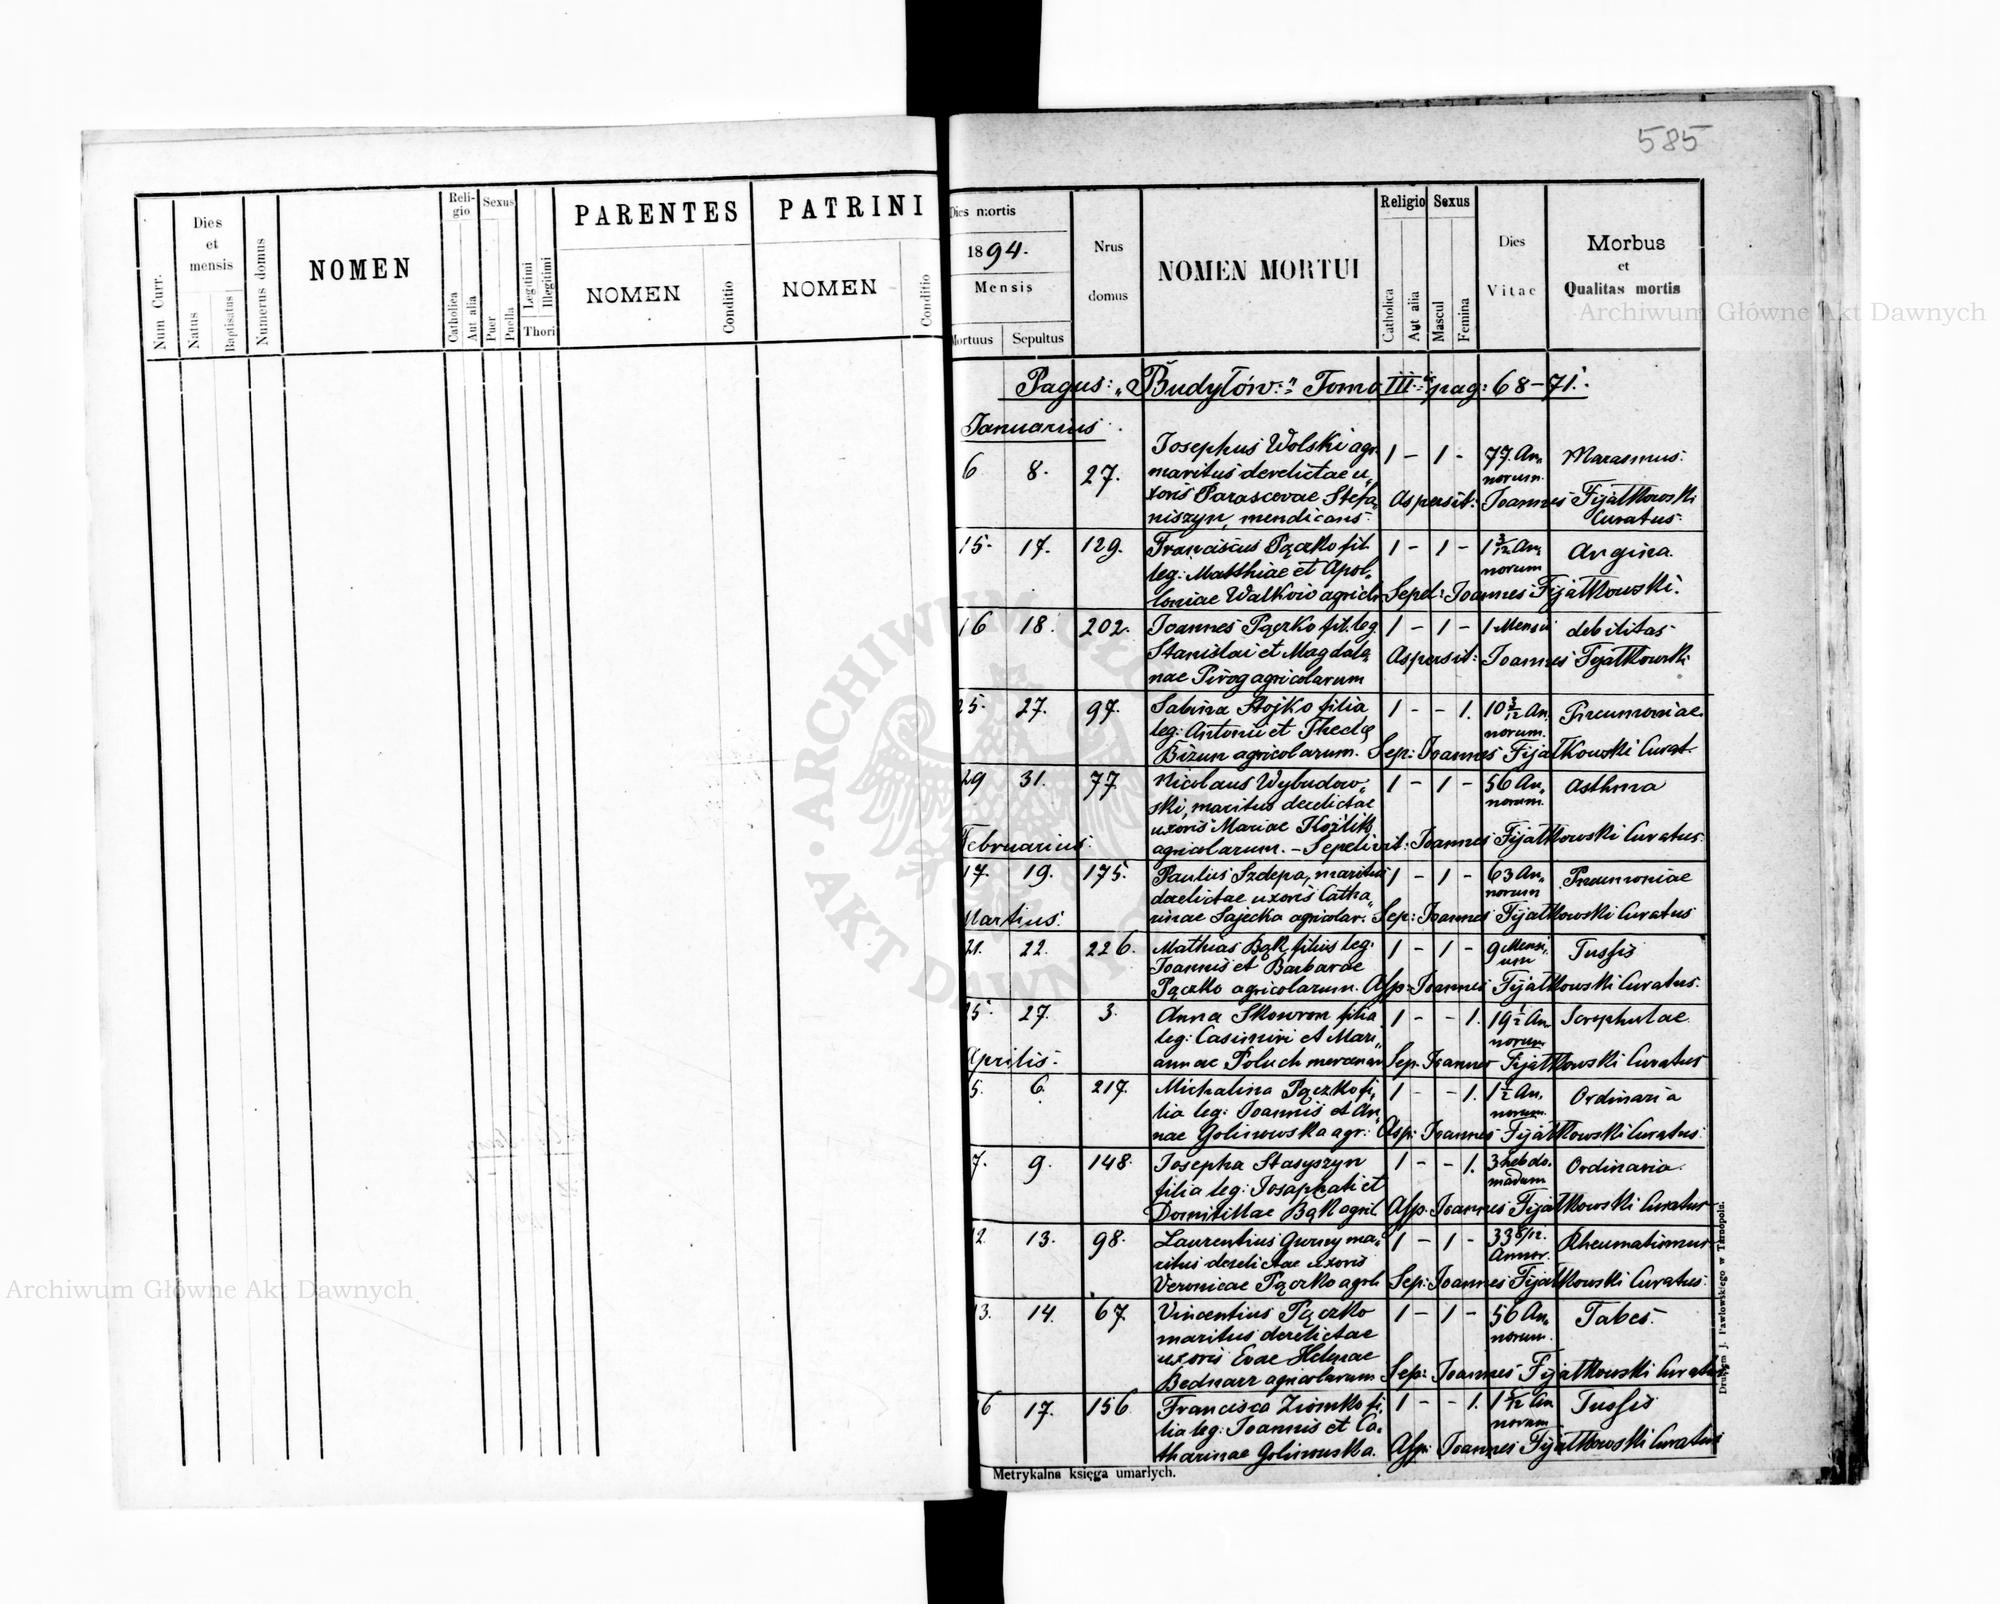 585
Num Curr.
Dies
et
mensis
Natus
Baptisatus
Numerus domus
NOMEN
Reli-
gio
Catholica
Aut alia
Sexus
Puer
Puella
Legitimi
Illegitimi
Thori
PARENTES
NOMEN
Conditio
PATRINI
NOMEN
Conditio
Dies mortis
1894.
Mensis
Mortuus
Sepultus
Nrus
domus
NOMEN MORTUI
Religio
Catholica
Aut alia
Sexus
Mascul
Femina
Dies
Vitae
Morbus
et
Qualitas mortis
Archiwum Główne Akt Dawnych
Pagus: „Budyłów:" Tomo III. pag: 68-71.
Januarius.
6 8. 27. Josephus Wolski agr. 1 - 1 - 77. An- Marasmus.
maritus derelictae u- norum.
xoris Parascevae Stefa- Aspersit: Joannes Fijałkowski
niszyn, mendicans. Curatus.
15. 17. 129. Franciscus Pączko fil. 1 - 1 - 1 3/12 An- Angina.
leg: Matthiae et Apol- norum
loniae Walków agricol. Sepel: Joannes Fijałkowski.
16 18. 202. Joannes Pączko fil. leg. 1 - 1 - 1 Mensis debilitas
Stanislai et Magdale- Aspersit: Joannes Fijałkowski
nae Pirog agricolarum
25. 27. 97. Sabina Stojko filia 1 - - 1. 10 3/12 An- Pneumoniae.
leg: Antonii et Theclę norum.
Bizun agricolarum. Sep: Joannes Fijałkowski Curat.
29 31. 77 Nicolaus Wybudow- 1 - 1 - 56 An- Asthma
ski, maritus derelictae norum.
uxoris Mariae Koźlik
Februarius. agricolarum. - Sepelivit: Joannes Fijałkowski Curatus.
17. 19. 175. Paulus Szdepa, maritus 1 - 1 - 63 An- Pneumoniae
derelictae uxoris Catha- norum
Martius. rinae Sajecka agricolar. Sep: Joannes Fijałkowski Curatus
21. 22. 226. Mathias Bąk filius leg. 1 - 1 - 9 Mensi- Tussis
Joannis et Barbarae um
Pączko agricolarum. Asp: Joannes Fijałkowski Curatus.
25. 27. 3. Anna Skowron filia 1 - - 1. 19 1/2 An- Scrophulae.
leg: Casimiri et Mari- norum
Aprilis. annae Poluch mercenar. Sep. Joannes Fijałkowski Curatus
5. 6. 217. Michalina Pączko fi- 1 - - 1. 1 1/2 An- Ordinaria
lia leg: Joannis et An- norum.
nae Golinowska agr: Asp: Joannes Fijałkowski Curatus.
7. 9. 148. Josepha Stasyszyn 1 - - 1. 3 hebdo- Ordinaria.
filia leg: Josaphati et madum
Domitillae Bąk agric. Asp. Joannes Fijałkowski Curatus
12. 13. 98. Laurentius Gurny ma- 1 - 1 - 33 6/12. Rheumatismus
ritus derelictae uxoris Annor.
Veronicae Pączko agric. Sep: Joannes Fijałkowski Curatus.
13. 14. 67. Vincentius Pączko 1 - 1 - 56 An- Tabes.
maritus derelictae norum.
uxoris Evae Helenae
Bednarz agricolarum Sep: Joannes Fijałkowski Curatus
16 17. 156 Francisca Ziomko fi- 1 - - 1. 1 5/12 An- Tussis
lia leg: Joannis et Ca- norum
tharinae Golinowska. Asp: Joannes Fijałkowski Curatus
Metrykalna księga umarłych.
Drukiem J. Pawłowskiego w Tarnopolu.
Archiwum Główne Akt Dawnych
ARCHIWUM GŁÓWNE AKT DAWNYCH